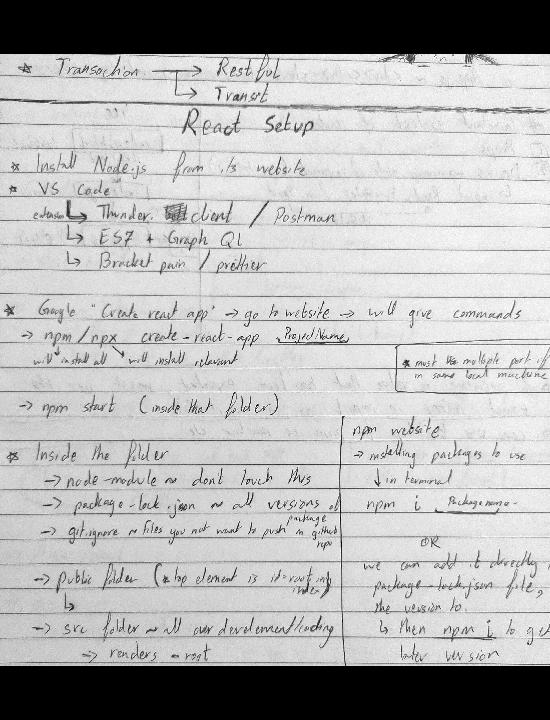 * Transaction → Restful
→ Transit
React Setup
* Install Node.js from its website
* VS Code
extension ↳ Thunder. client / Postman
↳ ES7 + Graph QL
↳ Bracket pain / prettier
* Google "Create react app" → go to website → will give commands
→ npm/npx create-react-app ProjectName
will install all will install relevant
* must use multiple port if
in same local machine
→ npm start (inside that folder)
* Inside the folder
→ node-module ~ don't touch this
→ package-lock.json ~ all versions of
package
→ git.ignore ~ files you not want to push in github
repo
→ public folder (* top element is id=root in
index)
↳
→ src folder ~ all our development/coding
→ renders - root
npm website
→ installing packages to use
↓ in terminal
npm i Packagename-
OR
we can add it directly in
package-lock.json file,
the version to.
↳ then npm i to get
later version